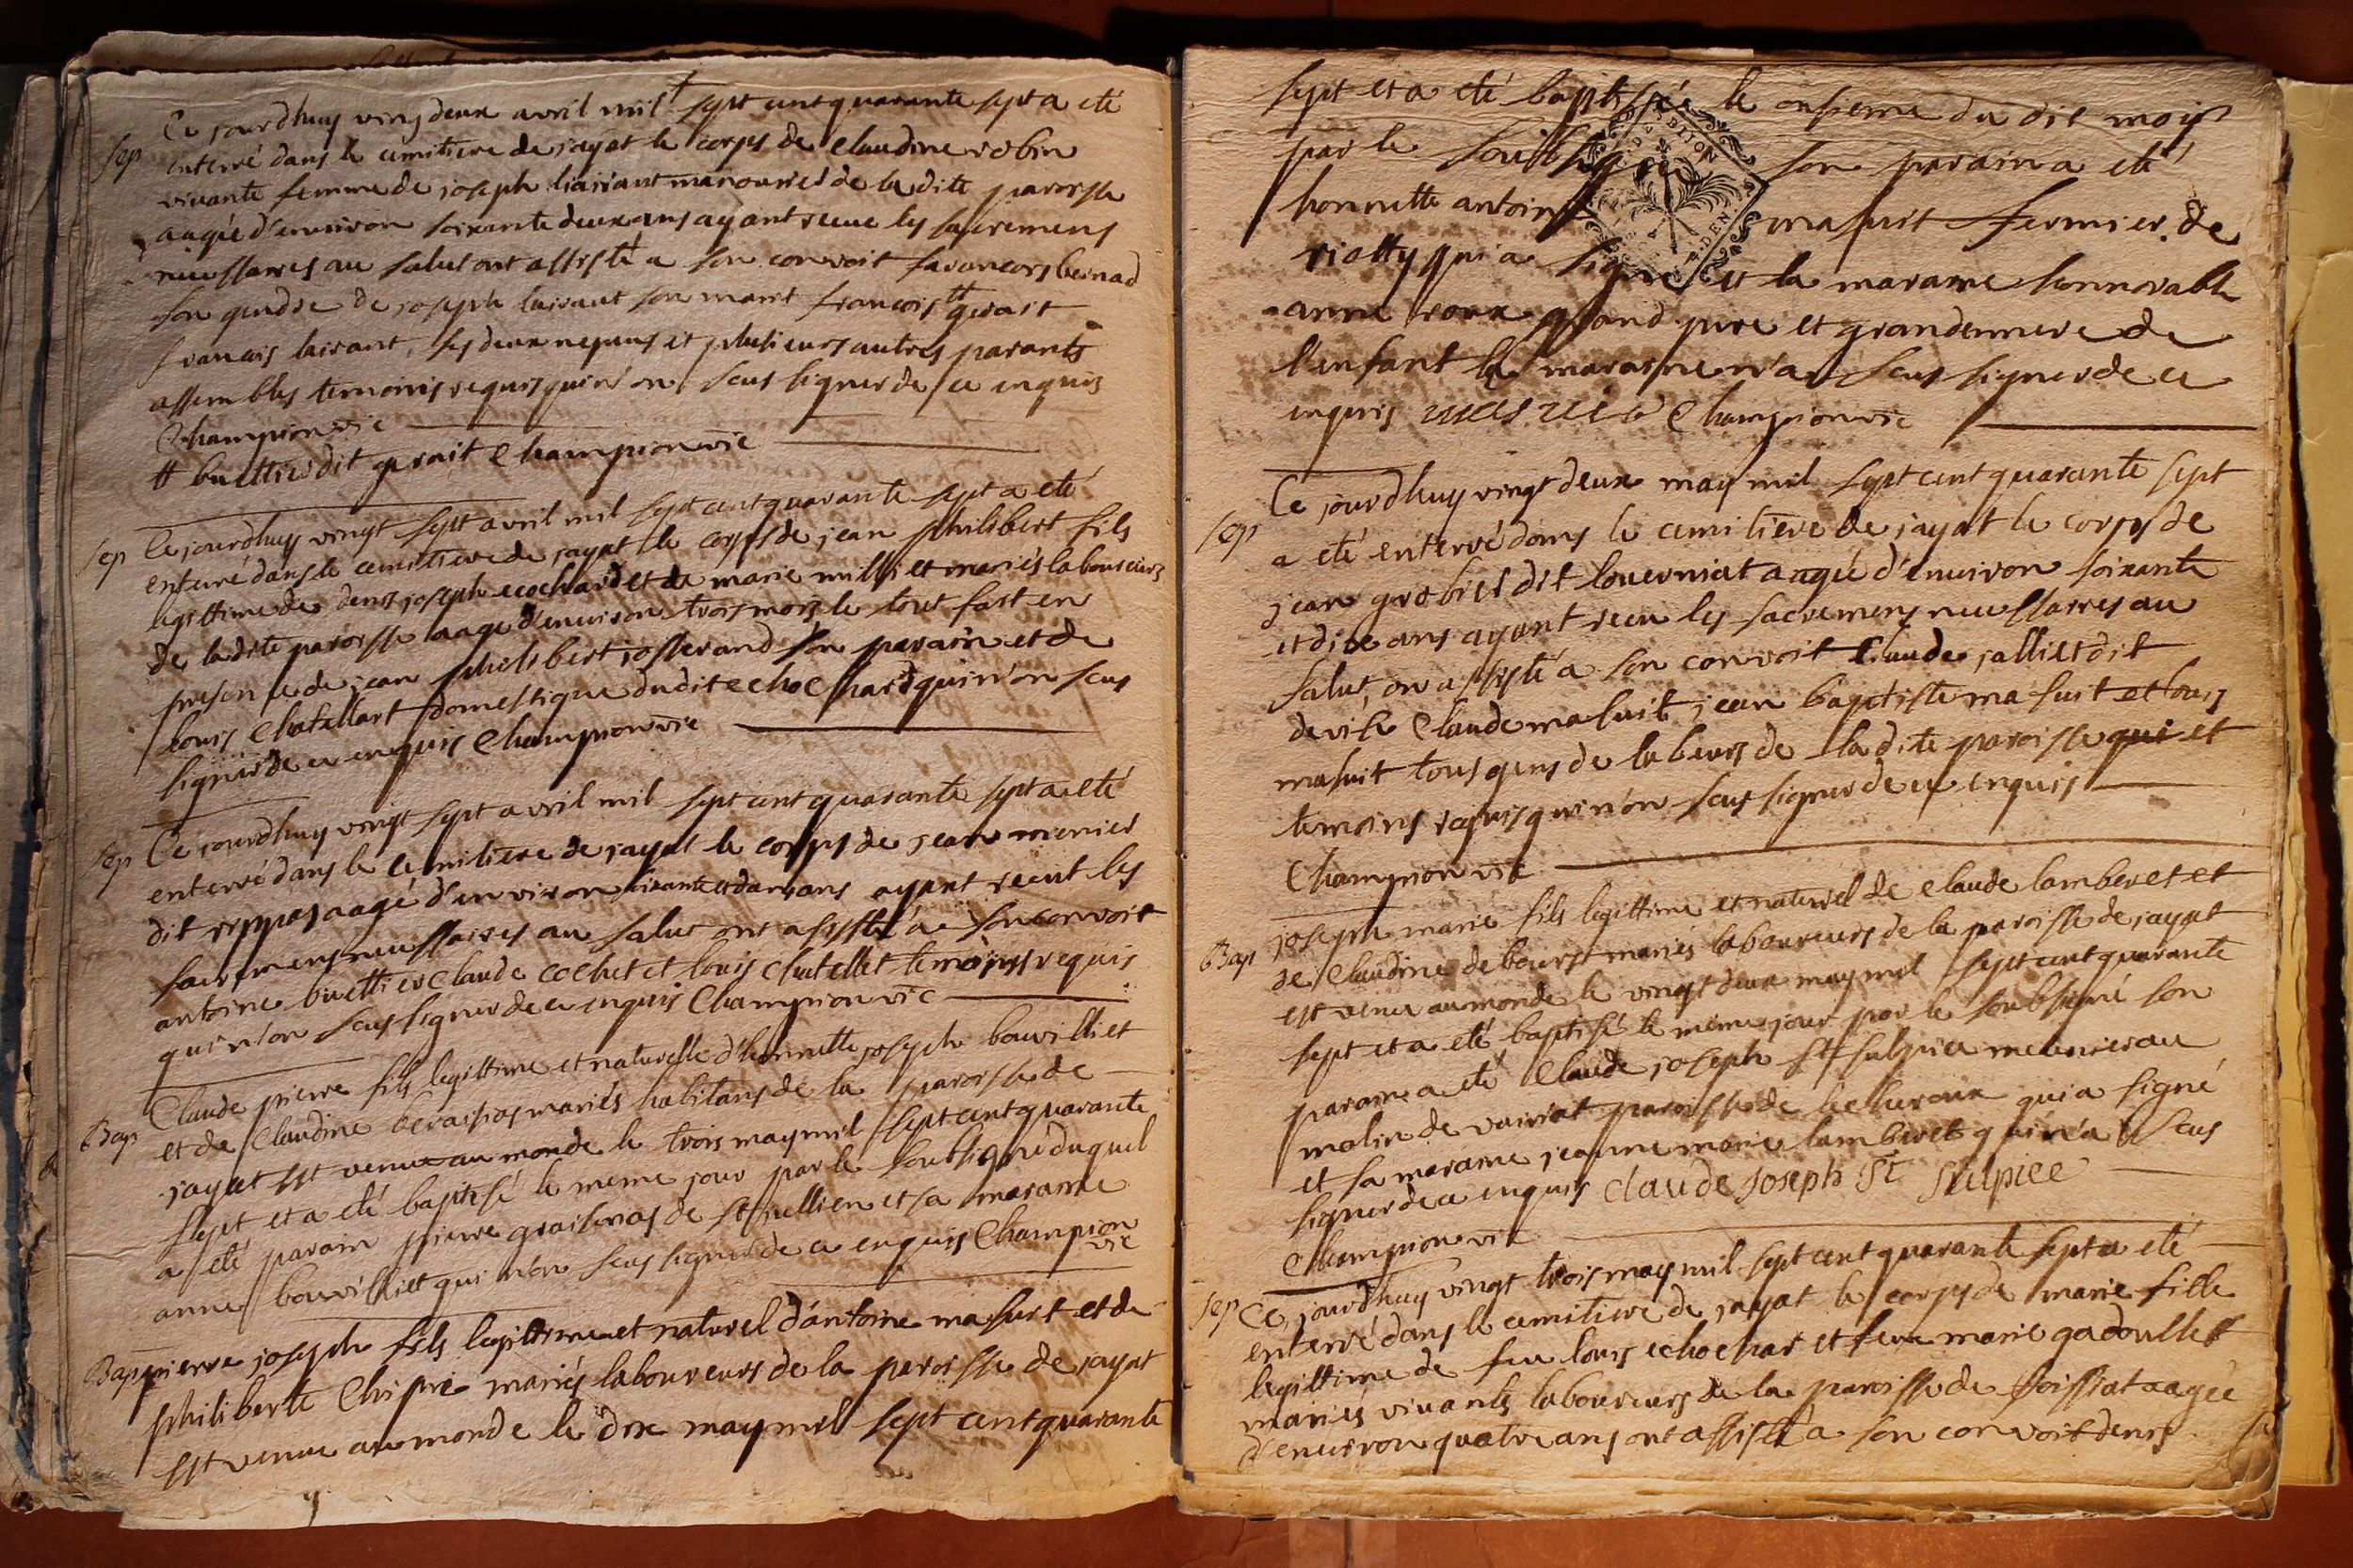 Ce jourdhuy vingdeux avril mil sept cent quarante sept a eté
Sep enterré dans le cimitiere de jayat le corps de claudine robin
vivante femme de joseph lairaut manouvrier de la dite paroisse
aagée d'environ soixante deux ans ayant recue les sacremens
necessaires au salut ont assisté a son convoit francois bernad
son gendre de joseph lairaut son marit francois # gerait
francais lairant, ses deux nepeus et plusieurs autres parants
assembles temoins requis qui n'on seus signer de ce enquis
Championvic
# buettier dit gerait Championvic
Sep Ce jourdhuy vingt sept avril mil sept cent quarante sept a eté
enterré dans le cimitiere de jayat le corps de jean philibert fils
legittime de denis joseph ecochard et de marie milli et mariés laboureurs
de ladite paroisse aagé d'environ trois mois le tout fait en
presence de jean philibert josserand son parain et de
louis Chatellart domestique dudit echochard qui n'on seus
signer de ce enquis Championvic
Sep Ce jourdhuy vingt sept avril mil sept cent quarante sept a eté
enterré dans le cemitiere de jayat le corps de jean monier
dit reppas aagé d'environ soixante et dans ans ayant recut les
sacremens necessaires au salut ont assisté a son convoit
antoine buettier claude cochet et louis chatellet temoins requis
qui n'on seus signer de ce enquis Championvic
Claude pierre fils legittime et naturelle d'honnette joseph bouvilliet
Bap et de Claudine beraisias mariés habitans de la paroisse de
jayat est venue au monde le trois may mil sept cent quarante
sept et a eté baptisé le meme jour par le soubsigné duquel
a eté parain pierre graisenas de st jullien et sa maraine
anne bouvilliet qui n'on seus signer de ce enquis Champion
vic
Bap pierre joseph fils legittime et naturel d'antoine masuit et de
philiberte Chispié mariés laboureurs de la paroisse de jayat
est venue au monde le dix may mil sept cent quarante
sept et a eté baptisé le onsieme du dit mois
par le soubsigné son parain a eté
honnette antoine masuit fermier de
riolty qui a signé et la maraine honnorable
anne roux grand pere et grandemere de
l'enfant la maraine n'as seus signer de ce
enquis masuit Championvic
Ce jourdhuy vingt deux may mil sept cent quarante sept
Sep a eté enterré dans le cimitiere de jayat le corps de
jean grobiet dit louerniat aagé d'environ soixante
et dix ans ayant recu les sacremens necessaires au
salut, on assisté a son convoit Claude jalliet dit
devile Claude masuit jean baptiste masuit et louis
masuit tous gens de labeurs de la dite paroisse qui et
temoins requis qui n'on seus signer de ce enquis
Championvic
joseph marie fils legittime et naturel de claude lamberet et
Bap de Claudine debourt mariés laboureurs de la paroisse de jayat
est venu au monde le vingt deux may mil sept cent quarante
sept et a eté baptisé le meme jour par le soubsigné son
paraine a eté Claude joseph st sulpice meunier au
molin de vaivrat paroisse de lecheroux qui a signé
et sa maraine jeanne marie lamberet qui n'a seus
signer de ce enquis Claude Joseph St Sulpice
Championvic
Sep Ce jourdhuy vingt trois may mil sept cent quarante sept a eté
enterré dans le cimitiere de jayat le corps de marie fille
legittime de feu louis echochar et feue marie gadoullet
mariés vivants laboureurs de la paroisse de foissiat aagée
d'environ quatre ans ont assisté a son convoit denis